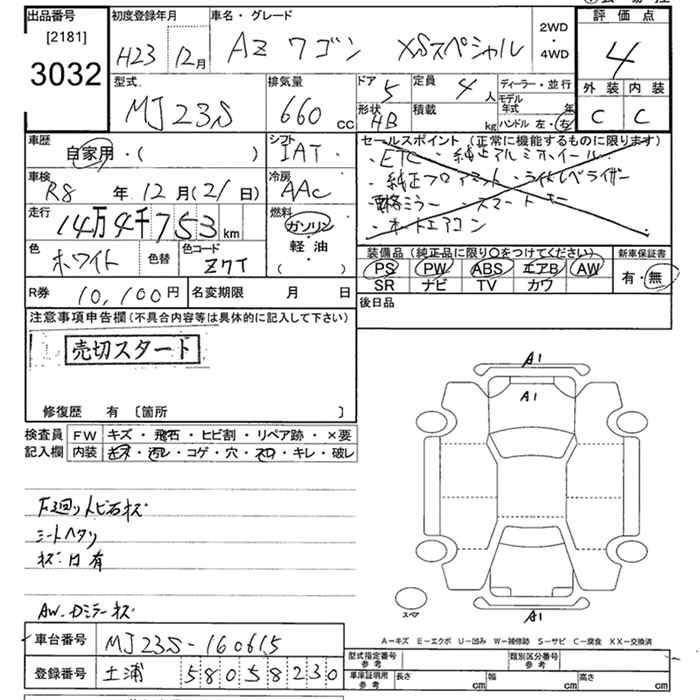 出品番号 初度登録年月 車名・グレード 2WD ・ 4WD 評価点
[2181]
3032 H23 12月 AZワゴン XSスペシャル 4
型式 排気量 ドア 定員 ディーラー・並行 外装 内装
MJ23S 660cc 5 4人 モデル年式 年 C C
形状 積載 ハンドル 左・右
HB kg
車歴 シフト セールスポイント (正常に機能するものに限ります)
自家用・( ) IAT ・ETC ・純正アルミホイール
車検 冷房 ・純正フロアマット ・ライトレベライザー
R8年12月(21日) AAC ・電格ミラー ・スマートキー
走行 燃料 ・オートエアコン
14万4千753km ガソリン
色 色替 色コード 軽油 装備品 (純正品に限り○をつけてください) 新車保証書
ホワイト Z7T ( ) PS PW ABS エアB AW 有・無
SR ナビ TV カワ
R券 10,100円 名変期限 月 日 後日品
注意事項申告欄(不具合内容等は具体的に記入して下さい)
売切スタート
修復歴 有 〔箇所 〕
検査員 FW キズ・飛石・ヒビ割・リペア跡・×要
記入欄 内装 キズ・汚レ・コゲ・穴・スロ・キレ・破レ
A1
A1
下廻りトビ石キズ
シートヘタリ
キズ・凹有
AW.Dミラーキズ
スペア
A1
A-キズ E-エクボ U-凹み W-補修跡 S-サビ C-腐食 XX-交換済
車台番号 MJ23S-160615
登録番号 土浦 580 5 8230
型式指定番号 参考 類別区分番号 参考
車庫証明用 参考 長さ cm 幅 cm 高さ cm